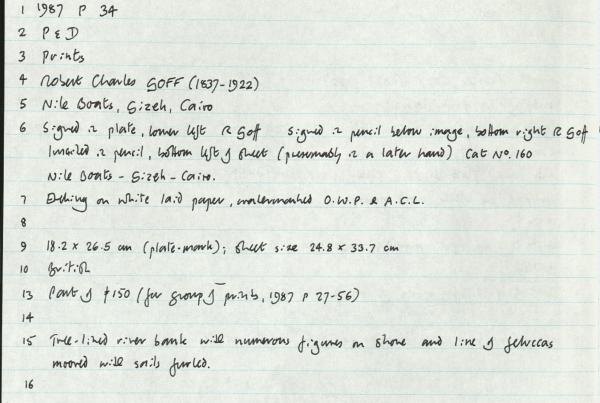 1 1987 P 34
2 P & D
3 Prints
4 Robert Charles GOFF (1837-1922)
5 Nile Boats, Gizeh, Cairo
6 Signed in plate, lower left R Goff Signed in pencil below image, bottom right R Goff
Inscribed in pencil, bottom left of sheet (presumably in a later hand) Cat No. 160
Nile Boats - Gizeh - Cairo.
7 Etching on white laid paper, watermarked O.W.P. & A.C.L.
8
9 18.2 x 26.5 cm (plate-mark); sheet size 24.8 x 33.7 cm
10 British
13 Part of £150 (for group of prints, 1987 P 27-56)
14
15 Tree-lined river bank with numerous figures on shore and line of feluccas
moored with sails furled.
16